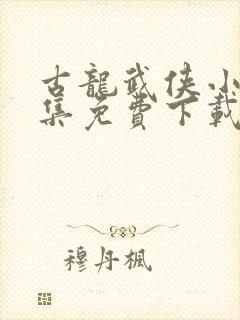 古龍武俠小
集免費下載
穆丹楓